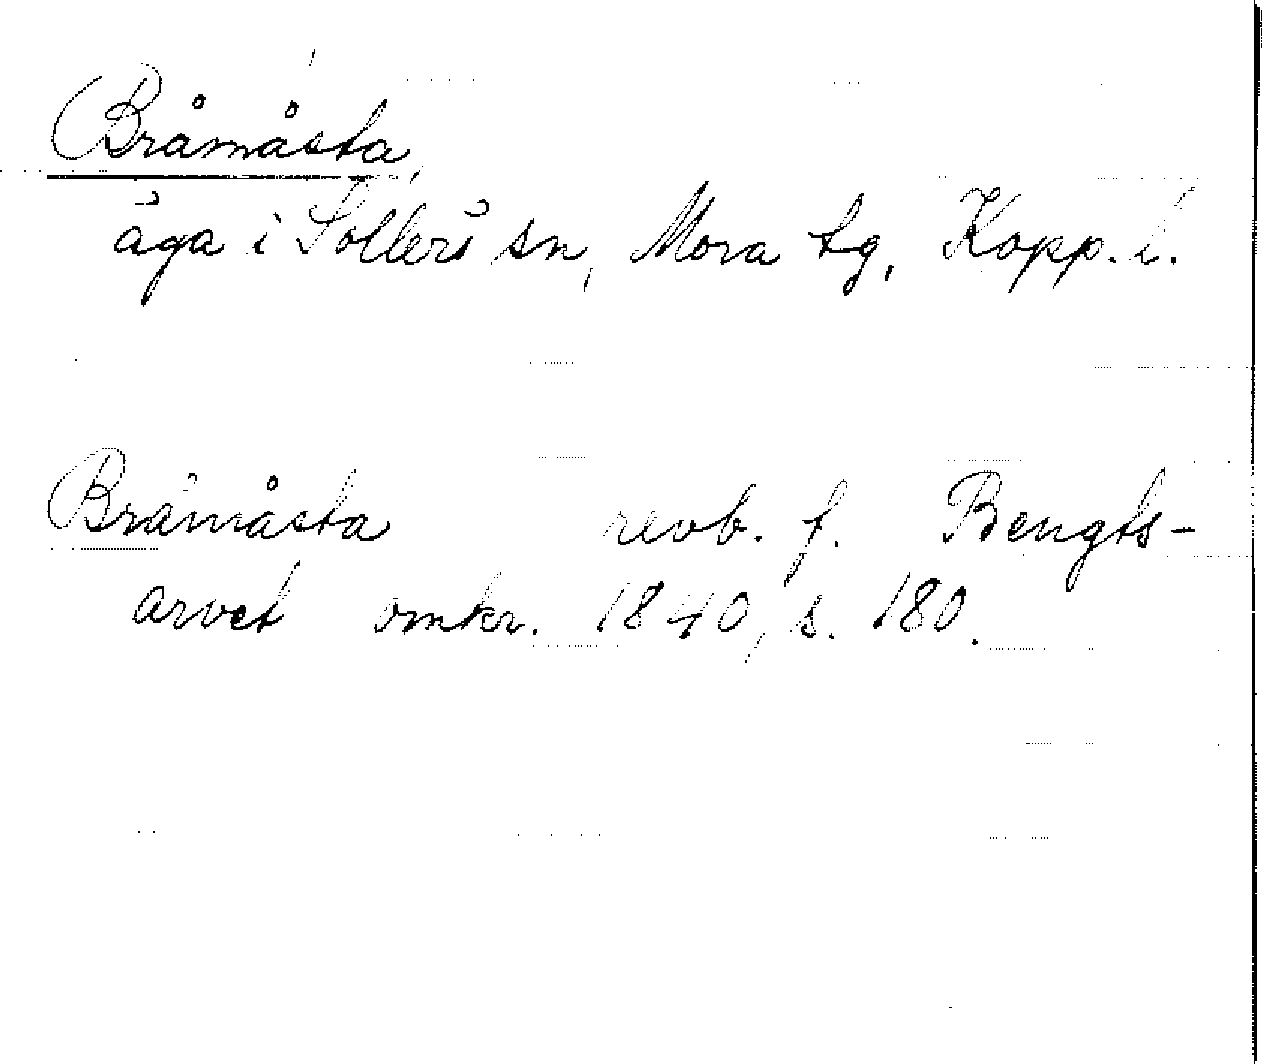 Bråmåsta,
äga i Sollerö sn, Mora tg, Kopp. l.
Bråmåsta revb. f. Bengts-
arvet omkr. 1840, s. 180.